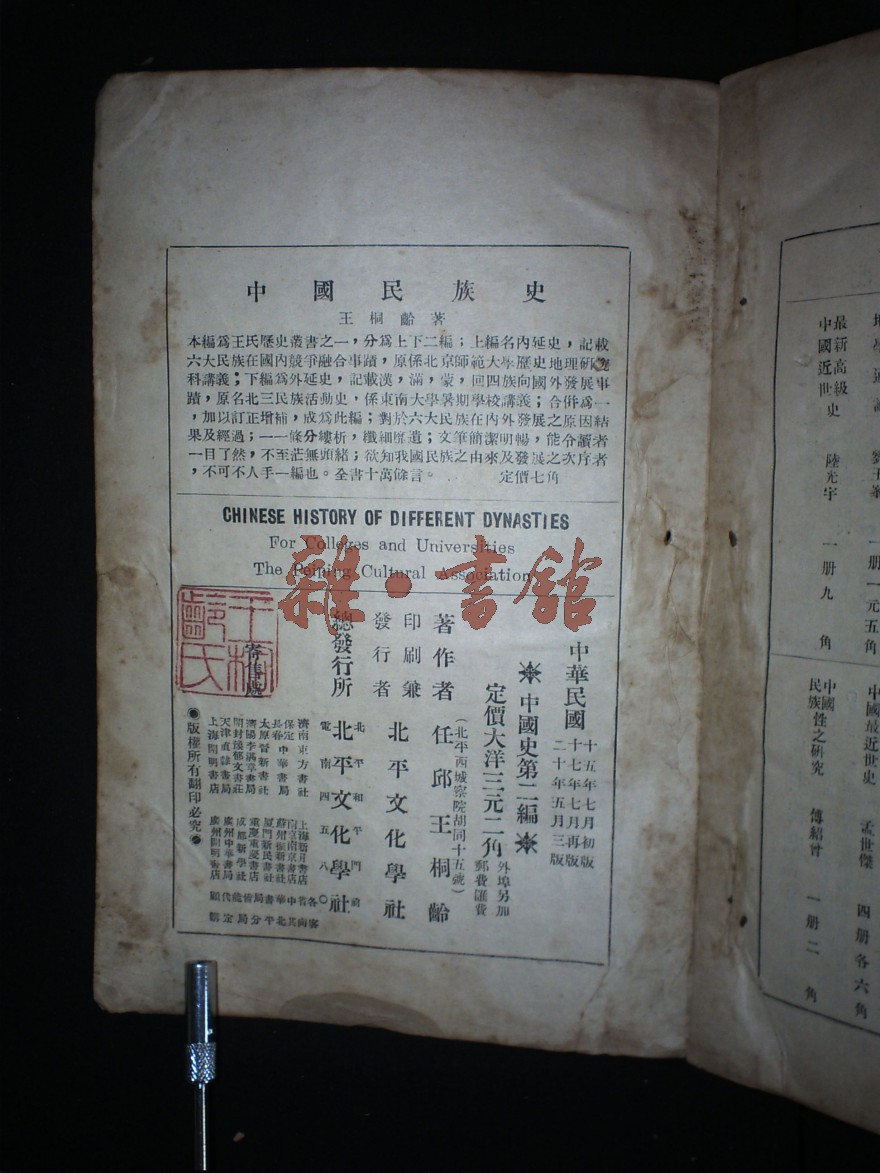 中國民族史
王桐齡著
本編爲王氏歷史叢書之一，分爲上下二編；上編名內延史，記載
六大民族在國內競爭融合事蹟，原係北京師範大學歷史地理研究
科講義；下編爲外延史，記載漢，滿，蒙，回四族向國外發展事
蹟，原名北三民族活動史，係東南大學暑期學校講義；合併爲一
，加以訂正增補，成爲此編；對於六大民族在內外發展之原因結
果及經過；一一條分縷析，纖細靡遺；文筆簡潔明暢，能令讀者
一目了然，不至茫無頭緒；欲知我國民族之由來及發展之次序者
，不可不人手一編也。全書十萬餘言。 定價七角
CHINESE HISTORY OF DIFFERENT DYNASTIES
For Colleges and Universities
The Peiping Cultural Association
雜·書館
中華民國
十五年七月初版
十七年七月再版
二十年五月三版
中國史第二編
定價大洋三元二角
外埠另加
郵費匯費
著作者 任邱王桐齡
（北平西城察院胡同十五號）
印刷兼
發行者
北平文化學社
總發行所 北平文化學社
北平和平門前
電南四五八〇
寄售處
濟南東方書社
保定
長春中華書局
太原晉新書社
瀋陽李滿章書局
開封龍郁文書莊
天津直隸書局
上海開明書店
上海新月書店
南京南京書店
蘇州振新書社
廈門新民書社
重慶重慶書店
成都新學社
廣州中華書局
廣州開明書店
各省中華書局皆能代顧
客向其北平分局定購
版權所有翻印必究
王桐齡氏
最新高級
中國近世史 陸光宇 一册九角
一册一元五角
中國
民族性之研究 傅紹曾 一册二角
中國最近世史 孟世傑 四册各六角